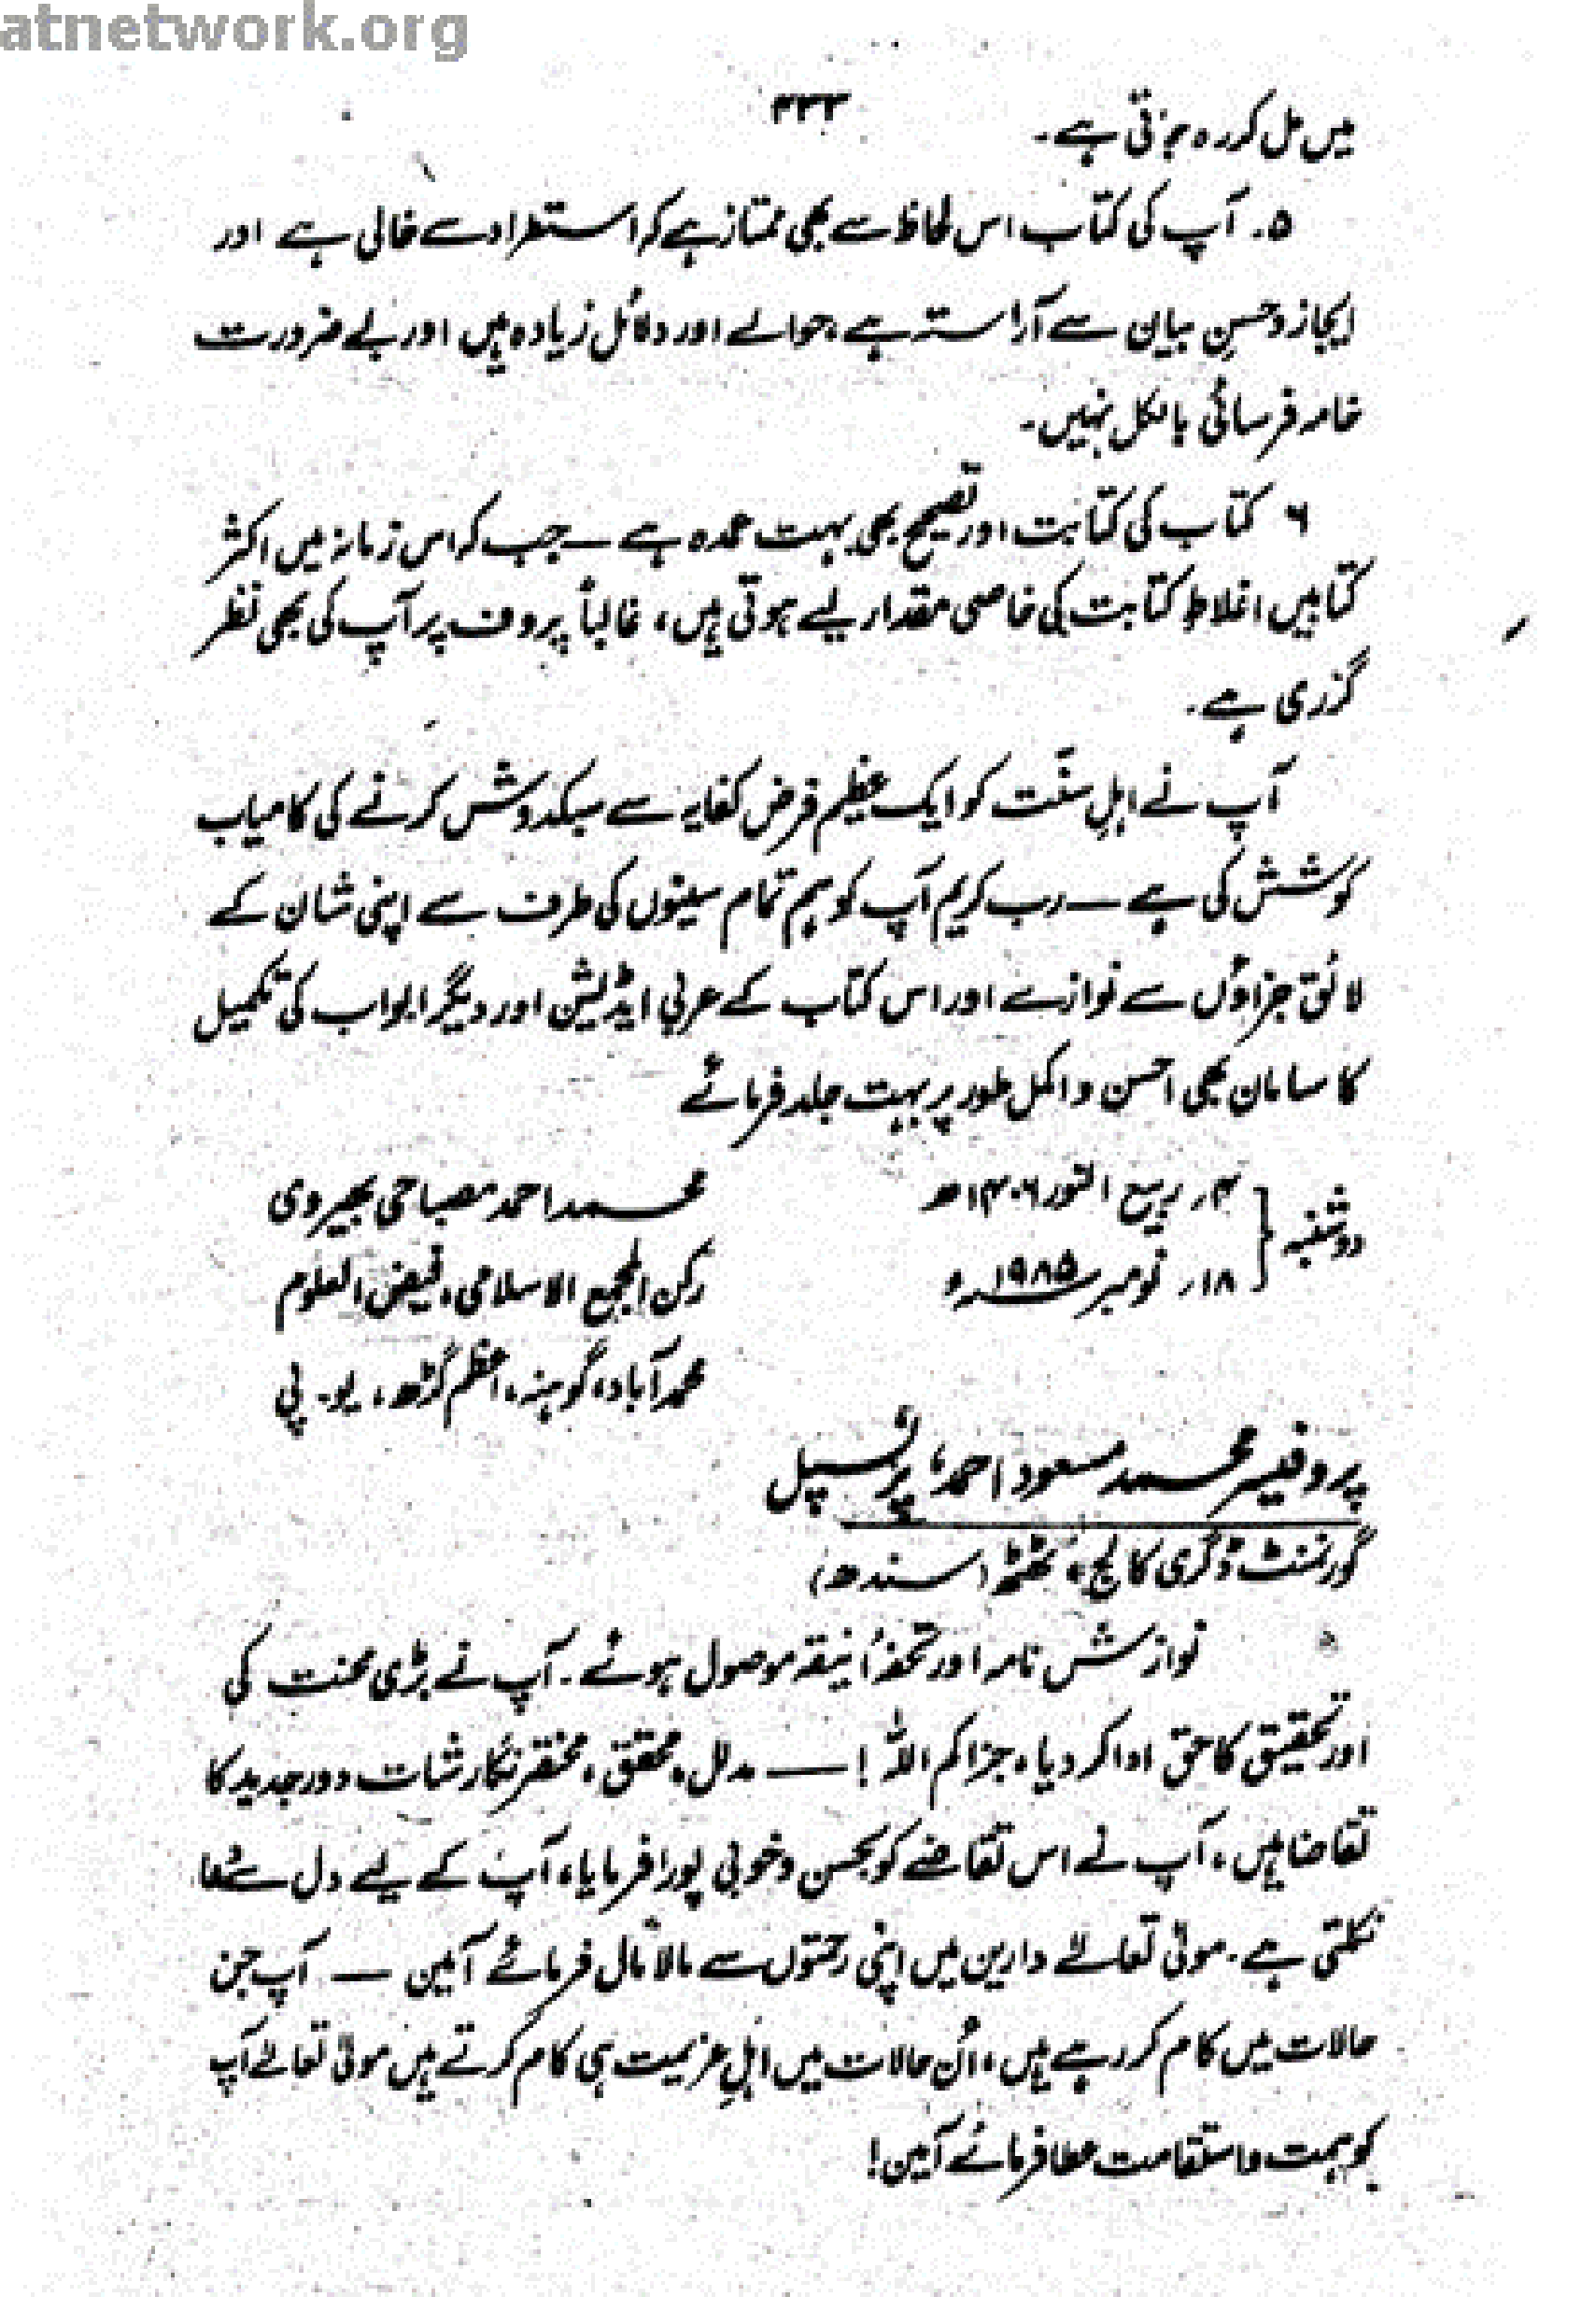 atnetwork.org
۳۳۳
میں مل کر رہ جاتی ہے۔
۵۔ آپ کی کتاب اس لحاظ سے بھی ممتاز ہے کہ استطراد سے خالی ہے اور
ایجاز و حسنِ بیان سے آراستہ ہے، حوالے اور دلائل زیادہ ہیں اور بے ضرورت
خامہ فرسائی بالکل نہیں۔
۶ کتاب کی کتابت اور تصحیح بھی بہت عمدہ ہے — جب کہ اس زمانہ میں اکثر
کتابیں اغلاطِ کتابت کی خاصی مقدار لیے ہوتی ہیں، غالباً پروف پر آپ کی بھی نظر
گزری ہے۔
آپ نے اہلِ سنّت کو ایک عظیم فرض کفایہ سے سبکدوش کرنے کی کامیاب
کوشش کی ہے — رب کریم آپ کو ہم تمام سینوں کی طرف سے اپنی شان کے
لائق جزاؤں سے نوازے اور اس کتاب کے عربی ایڈیشن اور دیگر ابواب کی تکمیل
کا سامان بھی احسن و اکمل طور پر بہت جلد فرمائے
دوشنبہ { ۴؍ ربیع النور ۱۴۰۶ھ
۱۸؍ نومبر ۱۹۸۵ء
محمد احمد مصباحی بھیروی
رکن المجمع الاسلامی، فیض العلوم
محمد آباد، گوہنہ، اعظم گڑھ، یو۔ پی
پروفیسر محمد مسعود احمد، پرنسپل
گورنمنٹ ڈگری کالج، ٹھٹھہ (سندھ)
نوازش نامہ اور تحفۂ انیقہ موصول ہوئے۔ آپ نے بڑی محنت کی
اور تحقیق کا حق ادا کر دیا، جزاکم اللہ! — مدلل، محقق، مختصر نگارشات دور جدید کا
تقاضا ہیں، آپ نے اس تقاضے کو بحسن و خوبی پورا فرمایا، آپ کے لیے دل سے دعا
نکلتی ہے۔ مولیٰ تعالےٰ دارین میں اپنی رحمتوں سے مالا مال فرمائے آمین — آپ جن
حالات میں کام کر رہے ہیں، اُن حالات میں اہلِ عزیمت ہی کام کرتے ہیں مولیٰ تعالےٰ آپ
کو ہمت و استقامت عطا فرمائے آمین!